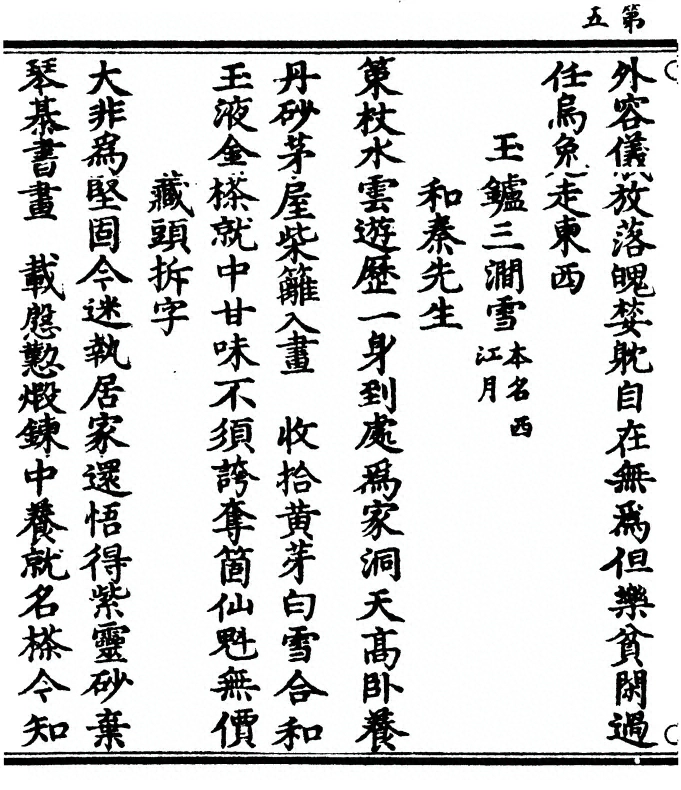 第五
外容儀放落魄婪躭自在無爲但樂貧閑過
任烏兔走東西
玉鑪三澗雪 本名西江月
和秦先生
策杖水雲遊歷一身到處爲家洞天高卧養
丹砂茅屋柴籬入畫 收拾黄芽白雪合和
玉液金㮈就中甘味不須誇奪箇仙魁無價
藏頭拆字
大非爲堅固今迷執居家還悟得紫靈砂棄
琴棊書畫 載慇懃煅鍊中養就名㮈今知